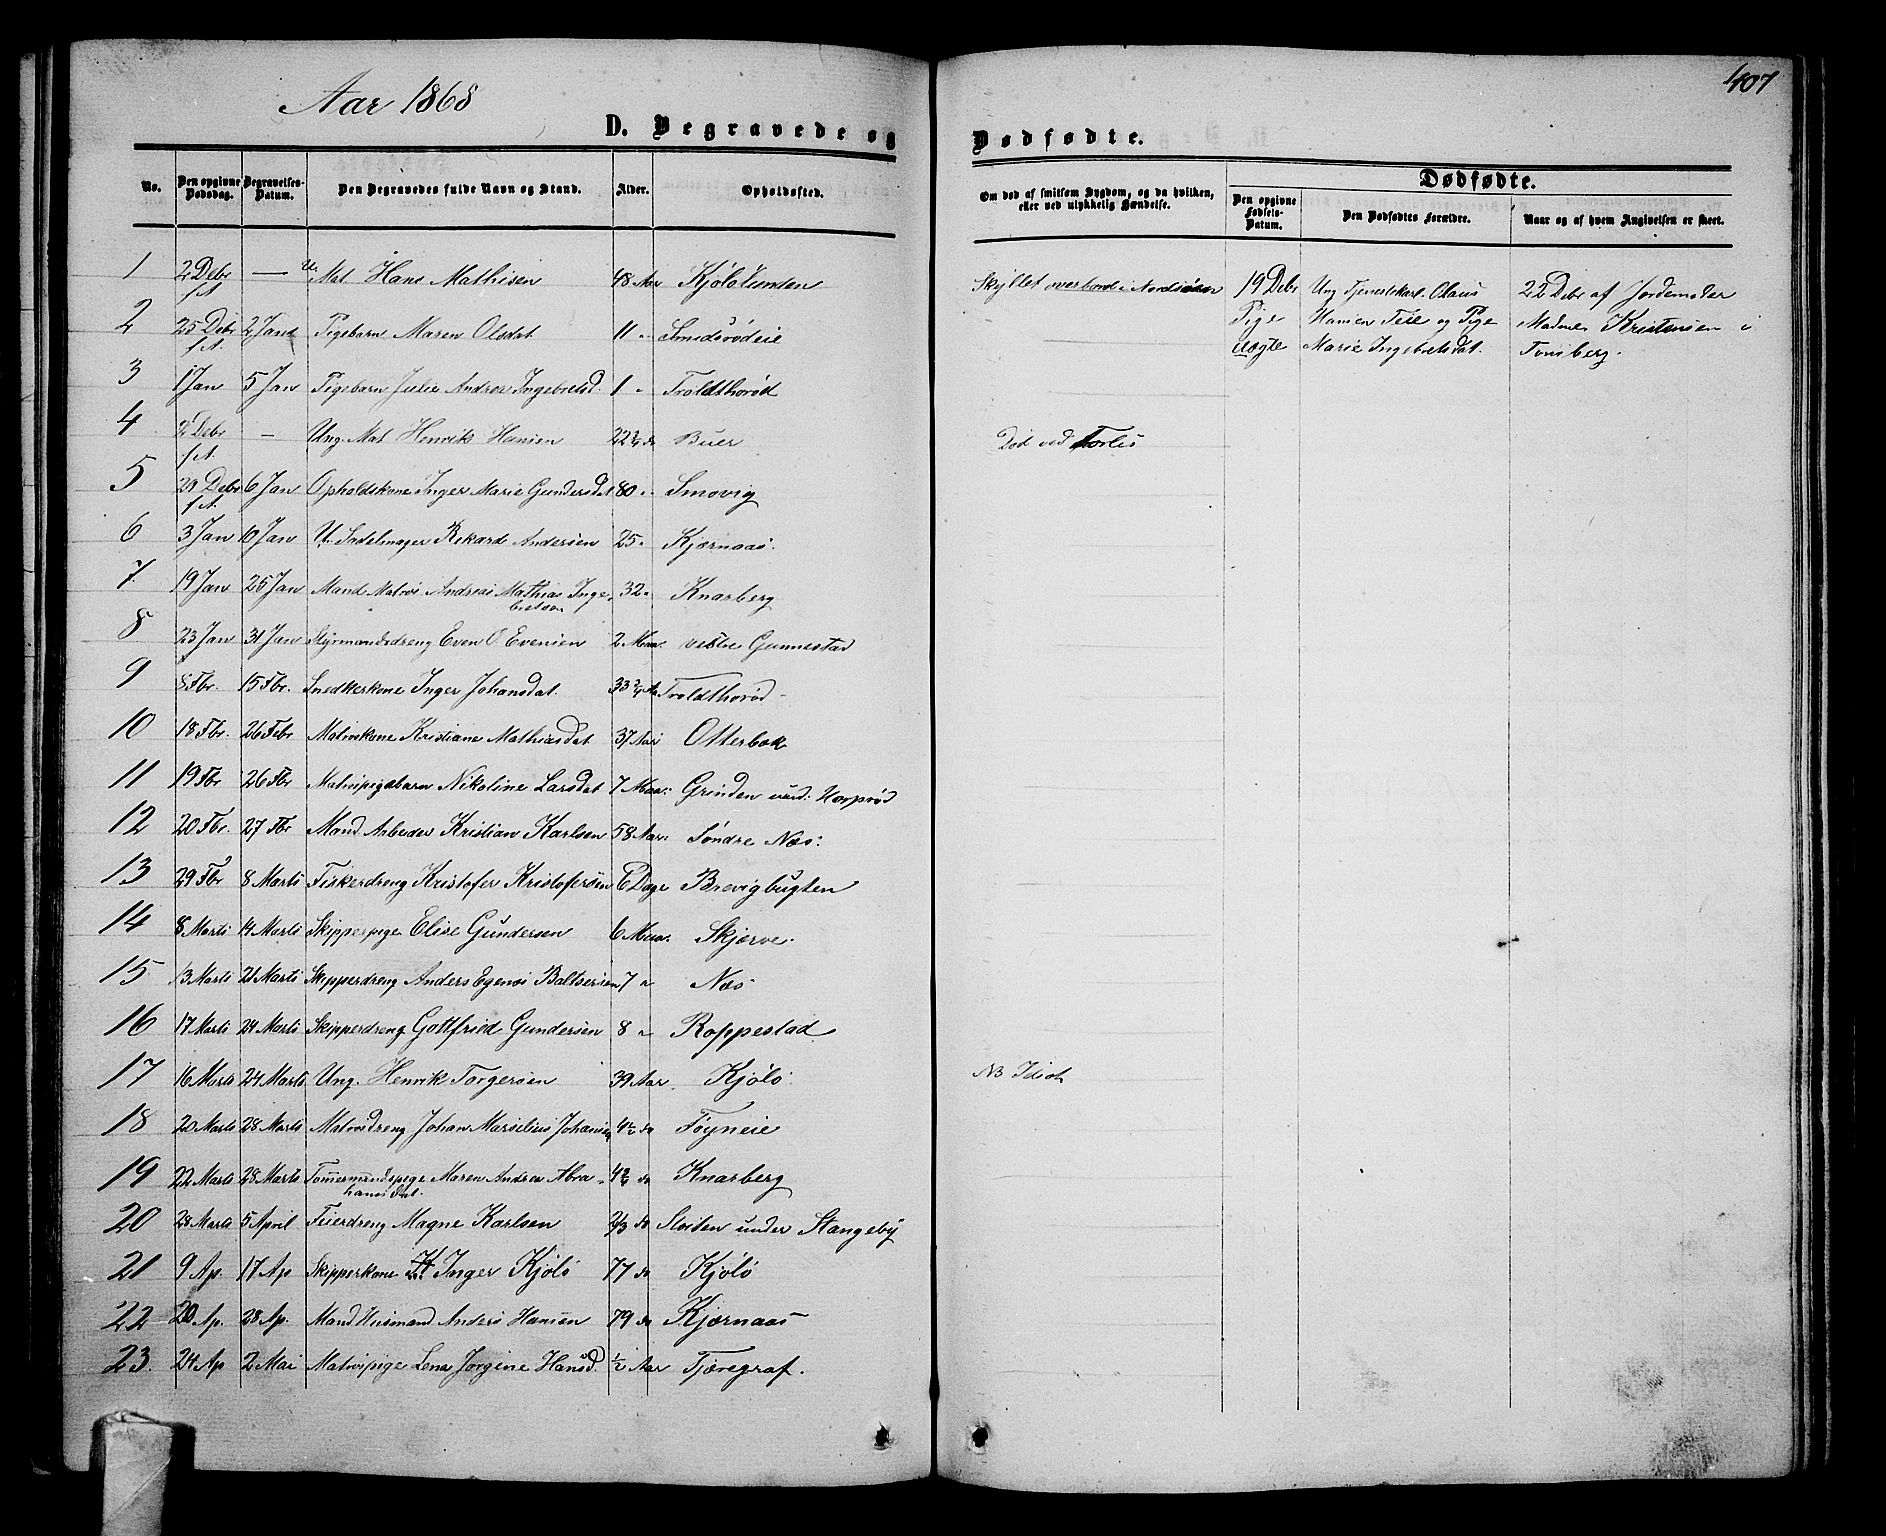 Aar 1868
407
D. Begravede og Dødfødte.
No. | Den opgivne Dødsdag. | Begravelses-Datum. | Den Begravedes fulde Navn og Stand. | Alder. | Opholdssted. | Om død af smitsom Sygdom, og da hvilken, eller ved ulykkelig Hændelse. | Dødfødte.
Den opgivne Fødsels-Datum. | Den Dødfødtes Forældre. | Naar og af hvem Angivelsen er skeet.
1 | 2 Debr f.A. | — | U. Mat. Hans Mathisen | 48 Aar | Kjølötunten | Skyllet overbord i Nordsøen | 19 Debr | Ung Tjenestekarl Olaus | 22 Debr af Jordemoder
Pige | Hansen Teie og Pige | Madme Kristensen i
uægte | Marie Ingebretsdat. | Tønsberg.
2 | 25 Debr f.A. | 2 Jan | Pigebarn Maren Olsdat | 11 " | Smidsrødeie
3 | 1 Jan | 5 Jan | Pigebarn Julie Andrea Ingebretsd. | 1 " | Troldthorød
4 | 2 Debr f.A. | — | Ung. Mat. Henrik Hansen | 22 3/4 do | Buer | Død ved Forlis
5 | 29 Debr f.A. | 6 Jan | Opholdskone Inger Marie Gundersdat | 80 " | Smovig
6 | 3 Jan | 10 Jan | U. Sadelmager Rekard Andersen | 25 " | Kjærnaas.
7 | 19 Jan | 25 Jan | Mand Matros Andreas Mathias Inge-
bretsen | 32 " | Knarberg
8 | 23 Jan | 31 Jan | Styrmandsdreng Even O. Evensen | 2 Maa. | vestre Gunnestad
9 | 8 Fbr. | 15 Fbr. | Snedkerkone Inger Johansdat. | 33 3/4 Aa | Troldthorød
10 | 18 Fbr. | 26 Febr | Matroskone Kristiane Mathiasdat | 37 Aar | Otterbæk
11 | 19 Fbr | 26 Fbr | Matrospigebarn Nikoline Larsdat | 7 Maa: | Grinden und: Horprød
12 | 20 Fbr. | 27 Fbr | Mand. Arbeder Kristian Karlsen | 58 Aar: | Söndre Næs:
13 | 29 Fbr | 8 Marts | Fiskerdreng Kristofer Kristofersen | 6 Dage | Brevigbugten
14 | 8 Marts | 14 Marts | Skipperpige Elise Gundersen | 6 Maa. | Skjærve.
15 | 13 Marts | 21 Marts | Skipperdreng Anders Egenæs Baltsersen | 7 " | Næs
16 | 17 Marts | 24 Marts | Skipperdreng Gottfried Gundersen | 8 " | Roppestad
17 | 16 Marts | 24 Marts | Ung. Henrik Torgersen | 39 Aar. | Kjölö | NB Idiot
18 | 20 Marts | 28 Marts | Matrosdreng Johan Marselius Johansen | 4 1/2 do | Föyneie
19 | 22 Marts | 28 Marts | Tømermandspige Maren Andrea Abra-
hamsdat. | 4 3/4 do | Knarberg
20 | 28 Marts | 5 April | Feierdreng Magne Karlsen | 2/3 do | Sloiten under Stangeby
21 | 9 Ap. | 17 Ap | Skipperkone Inger Kjölö | 77 do | Kjölö
22 | 20 Ap. | 28 Ap. | Mand Husmand Anders Hansen | 79 do | Kjærnaas
23. | 24 Ap | 2 Mai | Matrospige Lena Jørgine Hansd. | 1/2 Aar | Tjæregraf.